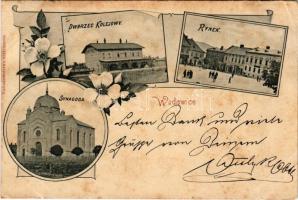 DWORZEC KOLEJOWY.
RYNEK.
SYNAGOGA
Wadowice
besten Dank und viele
Grüsse von Deinem